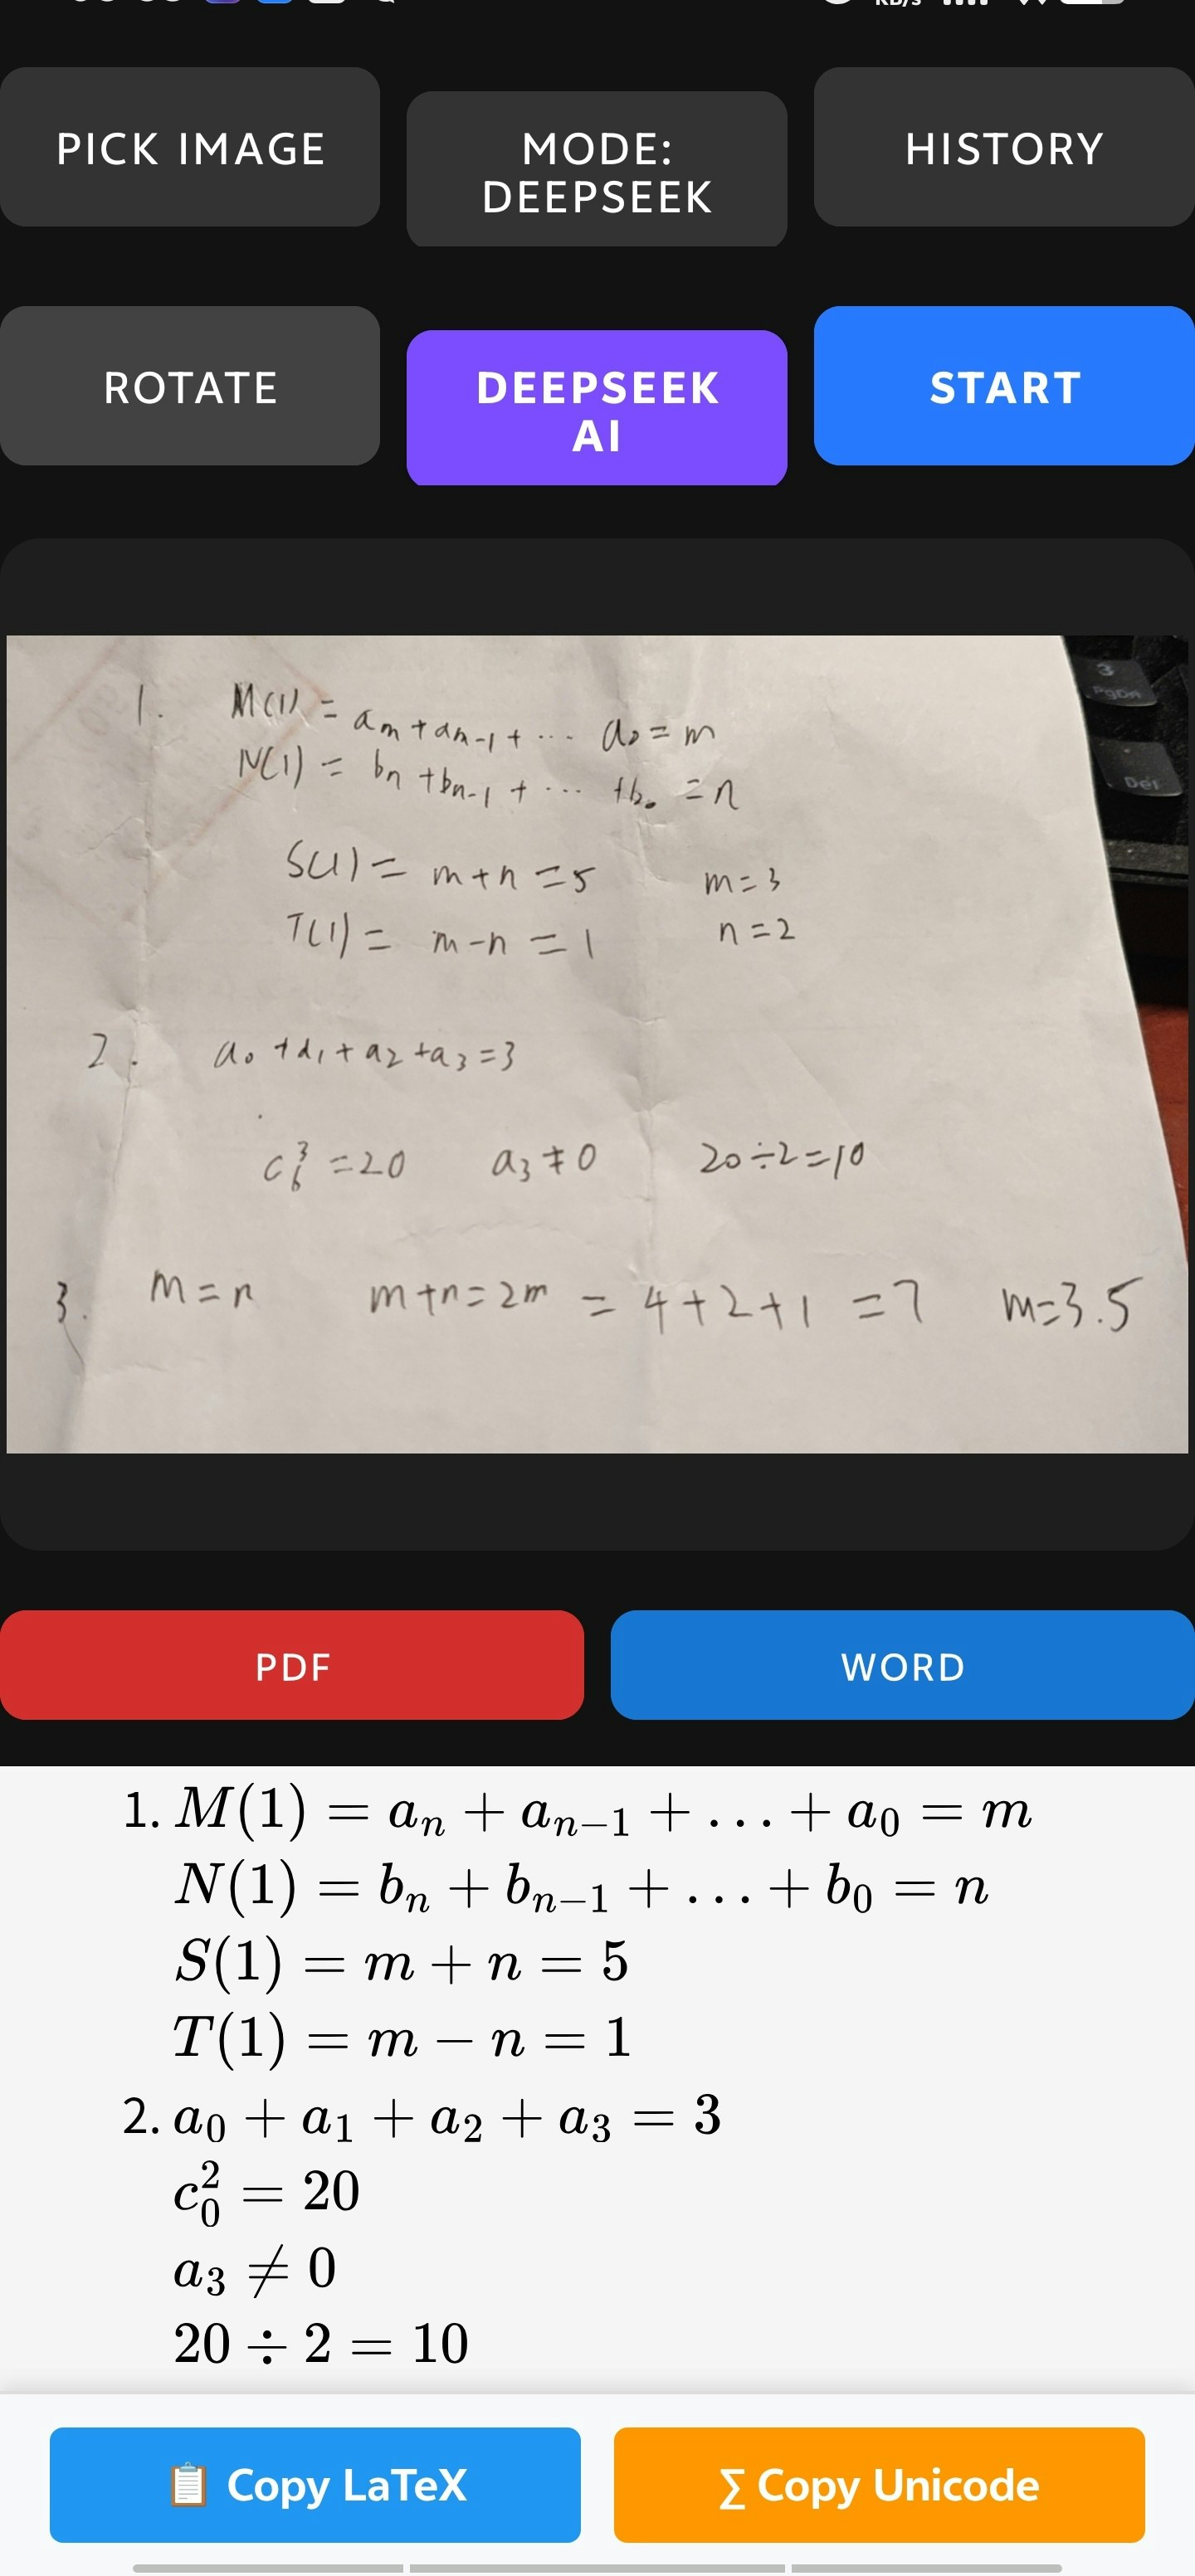 KB/s
PICK IMAGE
MODE: DEEPSEEK
HISTORY
ROTATE
DEEPSEEK AI
START
1. M(1) = aₘ + aₘ₋₁ + ... a₀ = m
N(1) = bₙ + bₙ₋₁ + ... + b₀ = n
S(1) = m + n = 5 m = 3
T(1) = m - n = 1 n = 2
2. a₀ + a₁ + a₂ + a₃ = 3
C₆³ = 20 a₃ ≠ 0 20 ÷ 2 = 10
3. m = n m + n = 2m = 4 + 2 + 1 = 7 m = 3.5
3
PgDn
Del
PDF
WORD
1. M(1) = aₙ + aₙ₋₁ + ... + a₀ = m
N(1) = bₙ + bₙ₋₁ + ... + b₀ = n
S(1) = m + n = 5
T(1) = m − n = 1
2. a₀ + a₁ + a₂ + a₃ = 3
c₀² = 20
a₃ ≠ 0
20 ÷ 2 = 10
Copy LaTeX
∑ Copy Unicode